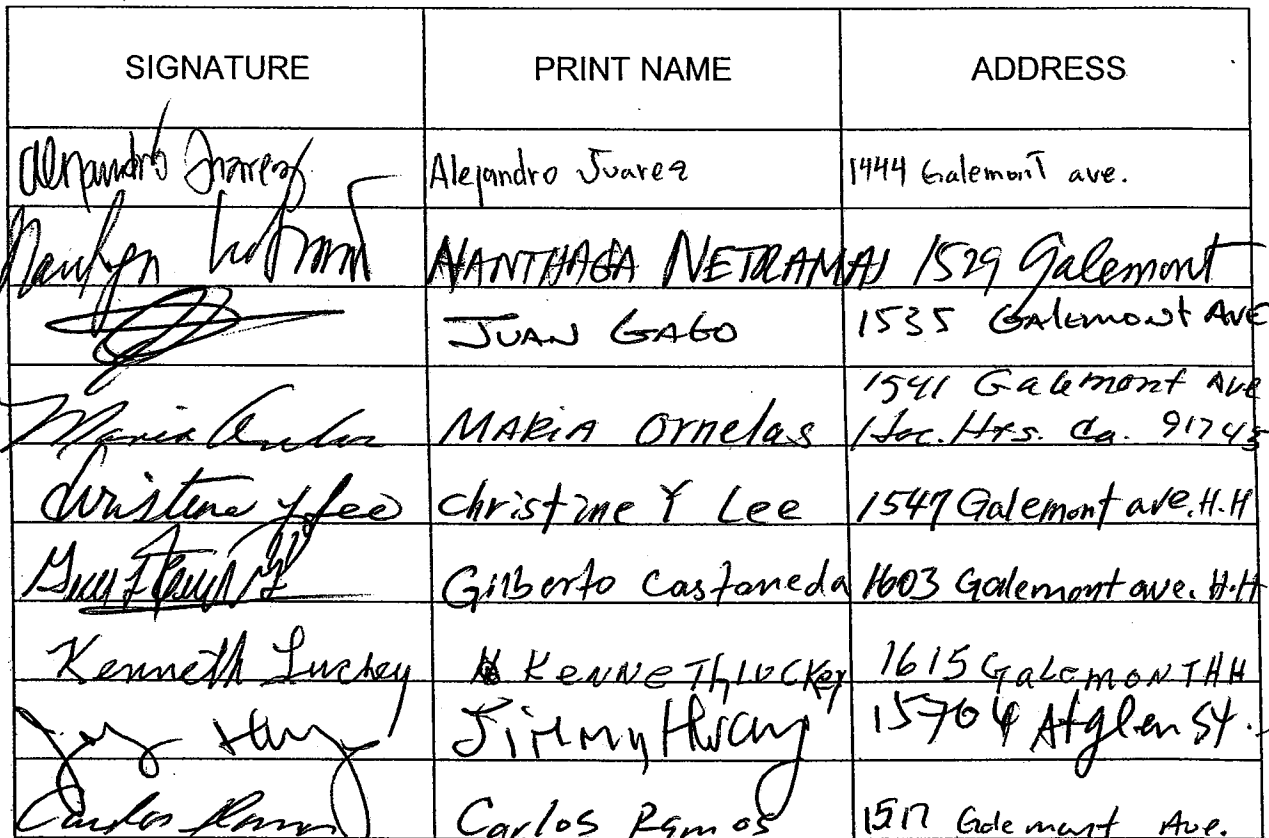 SIGNATURE PRINT NAME ADDRESS
Alejandro Juarez Alejandro Juarez 1444 Galemont ave.
NANTHAGA NETRAMAI 1529 Galemont
JUAN GAGO 1535 GALEMONT AVE
1541 Galemont Ave
Maria MARIA Ornelas Hac. Hts. Ca. 91745
Christine Y Lee Christine Y Lee 1547 Galemont ave. H.H
Gilberto Castaneda 1603 Galemont ave. H.H
Kenneth Luckey KENNETH LUCKEY 1615 GALEMONT HH
Jimmy Hwang 15704 Atglen St.
Carlos Ramos Carlos Ramos 1517 Galemont Ave.